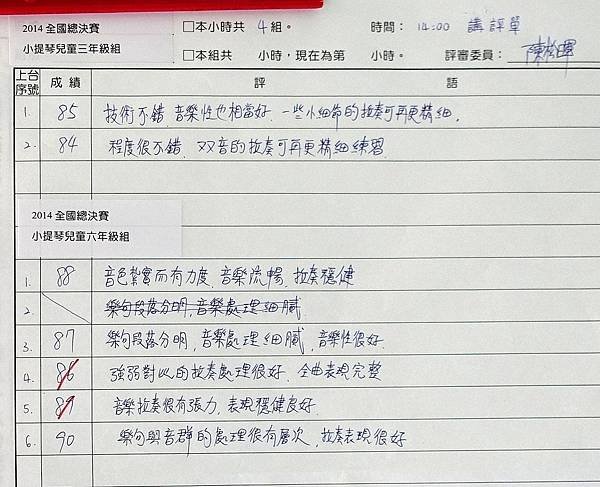 2014 全國總決賽
小提琴兒童三年級組
□本小時共 4 組。 時間： 14:00 講評單
□本組共 小時，現在為第 小時。 評審委員：
上台序號 成績 評 語
1. 85 技術不錯，音樂性也相當好，一些小細節的拉奏可再更精細。
2. 84 程度很不錯，双音的拉奏可再更精細練習
2014 全國總決賽
小提琴兒童六年級組
1. 88 音色紮實而有力度，音樂流暢，拉奏穩健
2. 樂句段落分明，音樂處理細膩
3. 87 樂句段落分明，音樂處理細膩，音樂性很好
4. 86 強弱對比的拉奏處理很好，全曲表現完整
5. 87 音樂拉奏很有張力，表現穩健良好
6. 90 樂句與音群的處理很有層次，拉奏表現很好